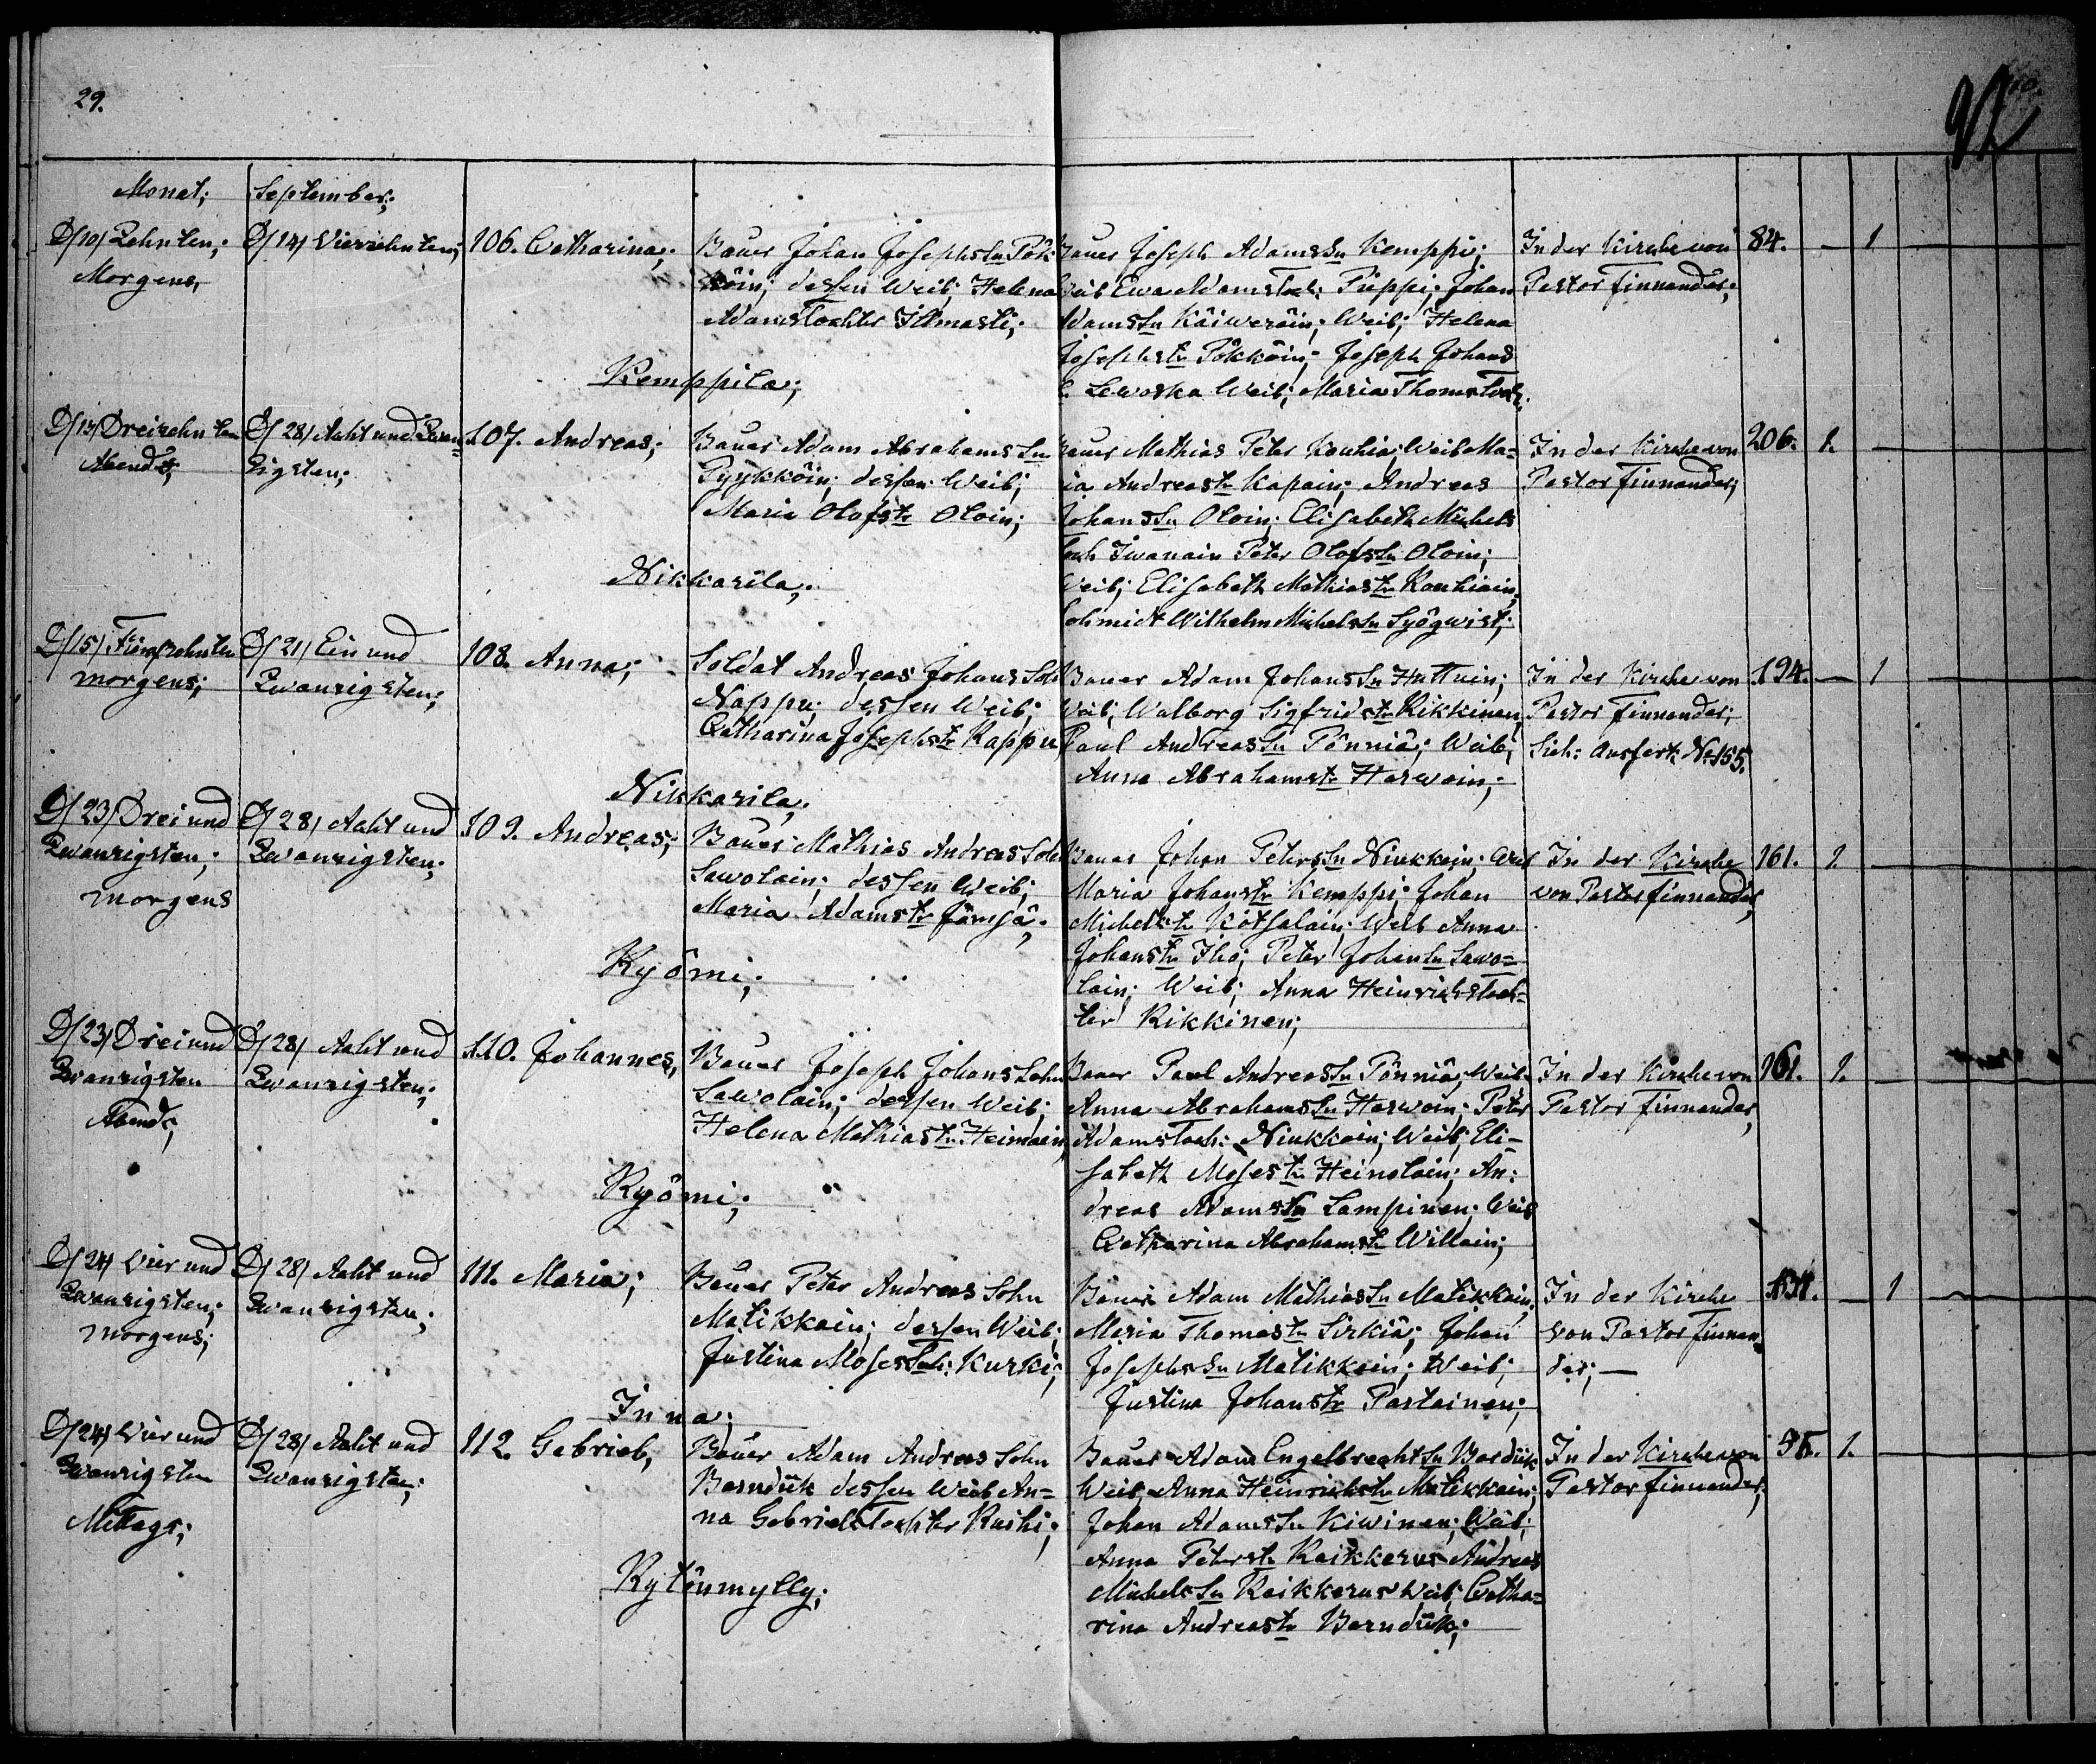 29.
Monat; September;
D/10/ Zehnten;
Morgens,
D/14/ Vierzehnten;
106. Catharina;
Bauer Johan Josephs Sn Pök
köin; dessen Weib; Helena
Adams Tochter Ilmasti;
Kemppila;
Bauer Joseph Adams Sn Kemppi;
Weib Ewa Adams Toch: Pieppi; Johan
Adams Sn Käiweräin; Weib; Helena
Josephs tr Pökköin; Joseph Johans
Lewoska Weib; Maria Thoms Toch.
In der Kirche von
Pastor Finnander;
84. — 1
D/13/ Dreizehnten
Abends;
D/28/ Acht und Zwan=
zigsten;
107. Andreas;
Bauer Adam Abrahams Sn
Pyykköin; dessen Weib;
Maria Olofs tr Oloin;
Nikkarila;
Bauer Mathias Peter Kouhia; Weib Ma=
ria Andreas tr Kapain; Andreas
Johans Sn Oloin; Elisabeth Michels
Toch Iwanain Peter Olofs Sn Oloin;
Weib; Elisabeth Mathias tr Kouhiain;
Schmidt Wilhelm Michels Sn Syögwist;
In der Kirche von
Pastor Finnander;
206. 1. —
D/15/ Fünfzehnten
morgens;
D/21/ Ein und
Zwanzigsten;
108. Anna;
Soldat Andreas Johans Soh
Nappu; dessen Weib;
Catharina Josephs tr Rappu
Nikkarila;
Bauer Adam Johans Sn Huttuin;
Weib; Walborg Sigfrids tr Rikkinen,
Paul Andreas Sn Pönniä; Weib;
Anna Abrahams tr Harwoin;
In der Kirche von
Pastor Finnander;
Sieh: Ausfert: No 155.
194. — 1
D/23/ Drei und
Zwanzigsten;
morgens
D/28/ Acht und
Zwanzigsten;
109. Andreas;
Bauer Mathias Andreas Sohn
Sawolain; dessen Weib;
Maria Adams tr Jämsä;
Kyömi;
Bauer Johan Peters Sn Niukkain; Weib
Maria Johans tr Kemppi; Johan
Michels tr Kötsalain; Weib Anna
Johans tr Iho; Peter Johan Sn Sawo=
lain; Weib; Anna Heinrichs Toch=
ter Rikkinen;
In der Kirche
von Pastor Finnander,
161. 1.
D/23/ Drei und
Zwanzigsten
Abends;
D/28/ Acht und
Zwanzigsten;
110. Johannes,
Bauer Joseph Johans Sohn
Sawolain; dessen Weib;
Helena Mathias tr Heimain,
Kyömi;
Bauer Paul Andreas Sn Pönniä; Weib
Anna Abrahams Sn Harwoin; Peter
Adams Toch: Niukkain; Weib; Eli-
sabeth Moses tr Heinolain; An:
dreas Adams Sn Lampinen; Weib
Catharina Abrahams tr Willain;
In der Kirche von
Pastor Finnander,
161. 1.
D/24/ Vier und
Zwanzigsten;
morgens;
D/28/ Acht und
Zwanzigsten;
111. Maria;
Bauer Peter Andreas Sohn
Matikkain; dessen Weib;
Justina Moses Toch: Kurki;
Inna;
Bauer Adam Mathias Sn Matikkain;
Maria Thomas tr Sirkiä; Johan
Josephs Sn Matikkain; Weib;
Justina Johans tr Partainen;
In der Kirche
von Pastor Finnan
der; —
— 1
D/24/ Vier und
Zwanzigsten
Mittags;
D/28/ Acht und
Zwanzigsten;
112. Gabriel,
Bauer Adam Andreas Sohn
Berndük dessen Weib An=
na Gabriels Tochter Ruthi;
Rytönmylly;
Bauer Adam Engelbrecht Sn Berdük
Weib, Anna Heinrichs tr Matikkain;
Johan Adams Sn Kiwinen; Weib;
Anna Peters tr Raikkerus Andreas
Michels Sn Raikkerus Weib; Catha=
rina Andreas tr Berndük;
In der Kirche von
Pastor Finnander;
1.